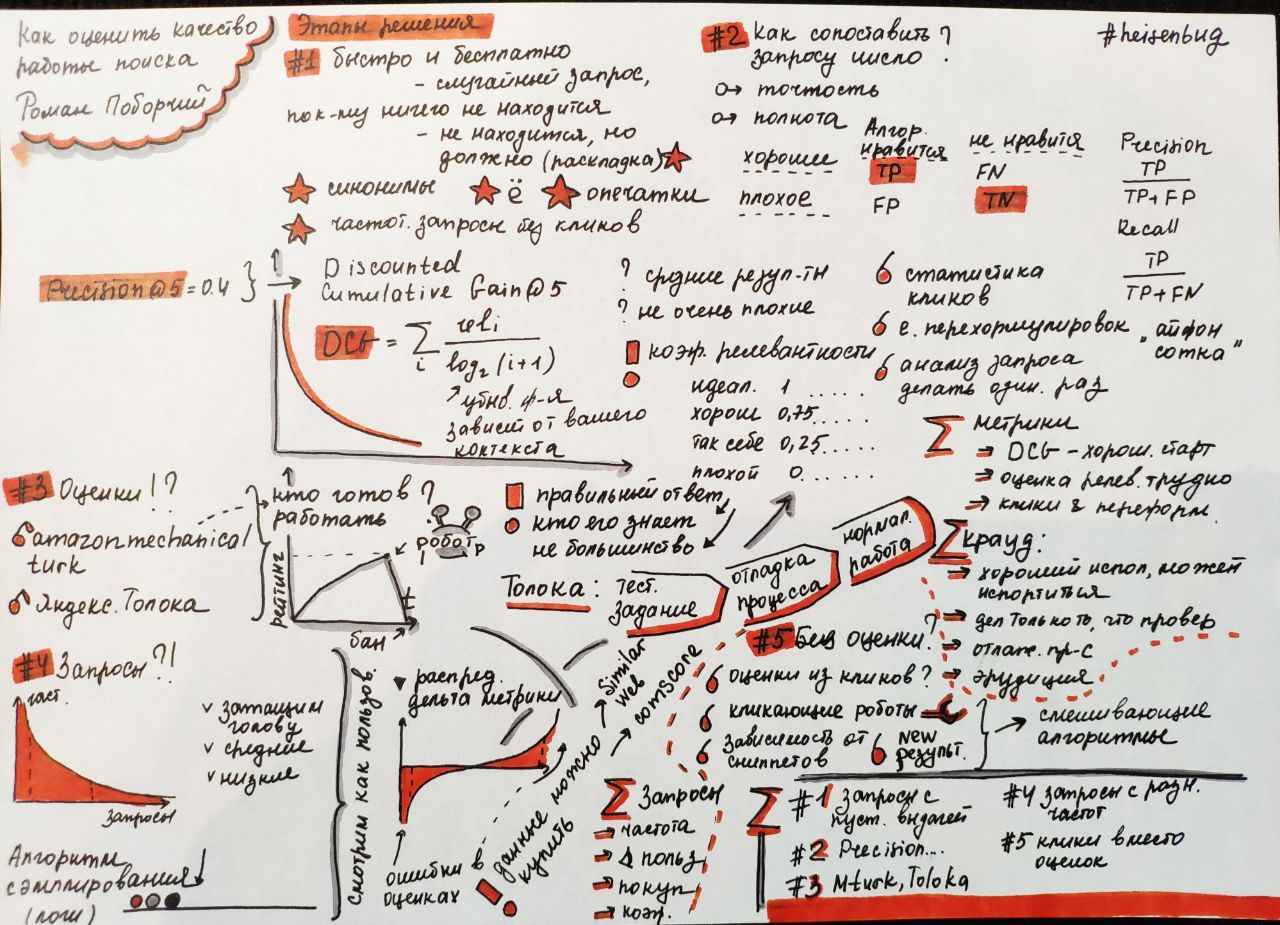 Как оценить качество
работы поиска
Роман Поборчий
Этапы решения
#1 быстро и бесплатно
- случайный запрос,
пок-му ничего не находится
- не находится, но
должно (раскладка)
синонимы
ё
опечатки
частот. запросы без кликов
#2 Как сопоставить ?
запросу число
точность
полнота
#heisenbug
Алгор.
нравится
не нравится
хорошее
TP
FN
плохое
FP
TN
Precision
TP
TP+FP
Recall
TP
TP+FN
Precision@5=0.4
Discounted
Cumulative Gain@5
DCG = ∑ rel i
i log₂(i+1)
убыв. ф-я
зависит от вашего
контекста
? средние резул-ты
? не очень плохие
коэф. релевантности
идеал. 1 ......
хорош 0,75.....
так себе 0,25.....
плохой 0.....
статистика
кликов
с. переформулировок „айфон
сотка"
анализ запроса
делать один. раз
∑ метрики
DCG - хорош. старт
оценка релев. трудно
клики & переформ.
#3 Оценки!?
amazon mechanical
turk
Яндекс.Толока
кто готов ?
работать
рейтинг
бан
t
робот?
правильный ответ
кто его знает
не большинство
Толока:
тест.
задание
отладка
процесса
нормал.
работа
∑ крауд:
хороший испол, может
испортиться
дел только то, что провер
отлаж. пр-с
эрудиция
#4 Запросы?!
част.
запросы
v затащим
голову
v средние
v низкие
Алгоритм
сэмплирования
(логи)
смотрим как пользов.
распред.
дельта метрики
ошибки в
оценках
данные можно
купить
Similar
web
comscore
∑ запросы
частота
Δ польз
покуп
коэф.
#5 Без оценки?
оценки из кликов?
кликающие роботы
зависимость от
сниппетов
new
результ.
смешивающие
алгоритмы
∑
#1 запросы с
пуст. выдачей
#2 Precision...
#3 Mturk, Toloka
#4 запросы с разн.
частот
#5 клики вместо
оценок